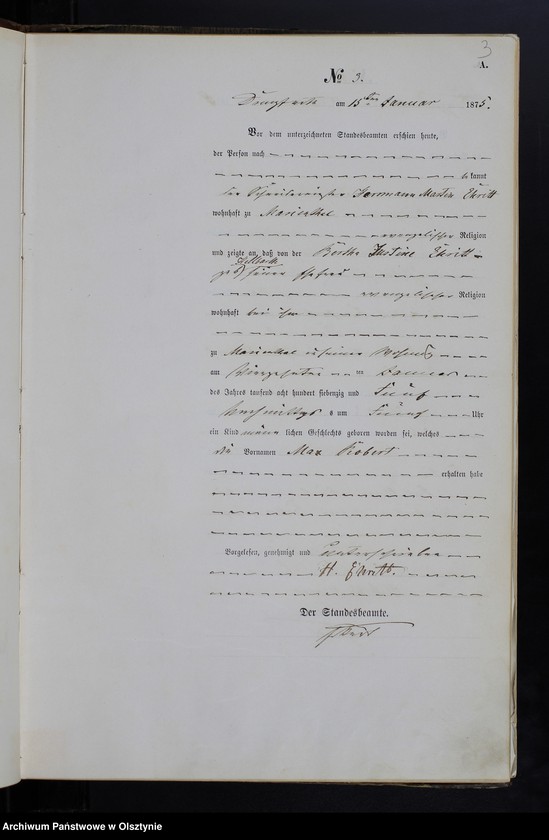 3
A.
No 3.
am 15ten Januar 1875.
Vor dem unterzeichneten Standesbeamten erschien heute,
der Person nach
bekannt
der Herrmann Martin Ehritt
wohnhaft zu Marienthal
evangelischer Religion
und zeigte an, daß von der Bertha Justine Ehritt
seiner Ehefrau
evangelischer Religion
wohnhaft bei ihm
zu Marienthal in seiner Wohnung
am vierzehnten Januar
des Jahres tausend acht hundert siebenzig und fünf
Nachmittags um fünf Uhr
ein Kind männlichen Geschlechts geboren worden sei, welches
die Vornamen Max Robert
erhalten habe
Vorgelesen, genehmigt und unterschrieben
H. Ehritt.
Der Standesbeamte.
Archiwum Państwowe w Olsztynie